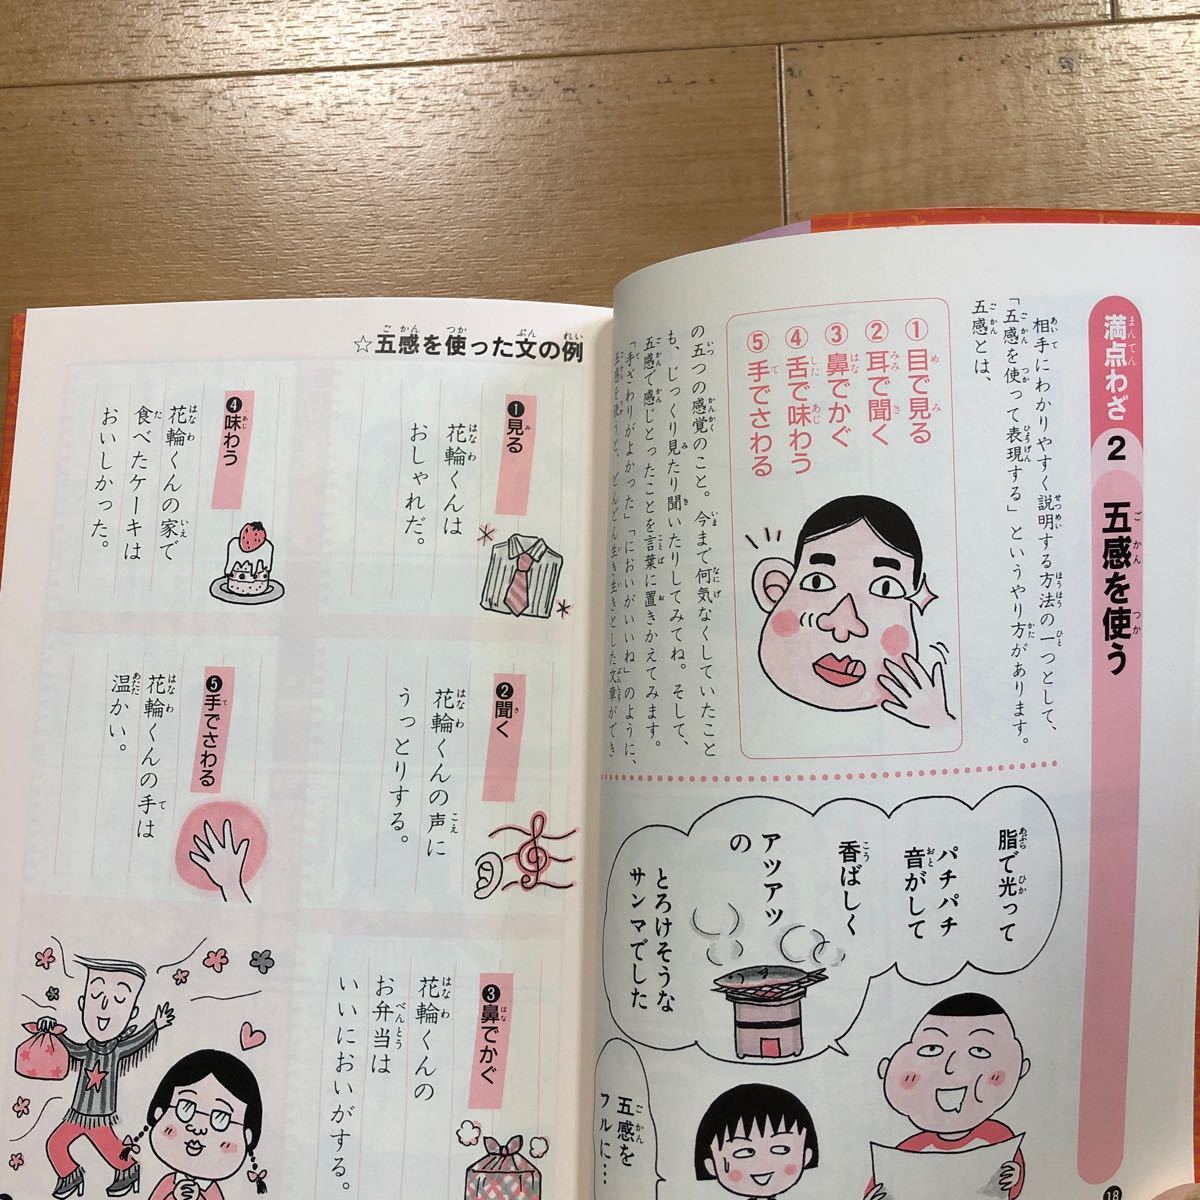 満点わざ 2 五感を使う
相手にわかりやすく説明する方法の一つとして、
「五感を使って表現する」というやり方があります。
五感とは、
① 目で見る
② 耳で聞く
③ 鼻でかぐ
④ 舌で味わう
⑤ 手でさわる
の五つの感覚のこと。今まで何気なくしていたこと
も、じっくり見たり聞いたりしてみてね。そして、
五感で感じとったことを言葉に置きかえてみます。
「手ざわりがよかった」「においがいいね」のように、
五感を使うと、どんどん生き生きとした文章ができ
脂で光って
パチパチ
音がして
香ばしく
アツアツ
の
とろけそうな
サンマでした
五感を
フルに…
18
☆五感を使った文の例
❶見る
花輪くんは
おしゃれだ。
❷聞く
花輪くんの声に
うっとりする。
❸鼻でかぐ
花輪くんの
お弁当は
いいにおいがする。
❹味わう
花輪くんの家で
食べたケーキは
おいしかった。
❺手でさわる
花輪くんの手は
温かい。